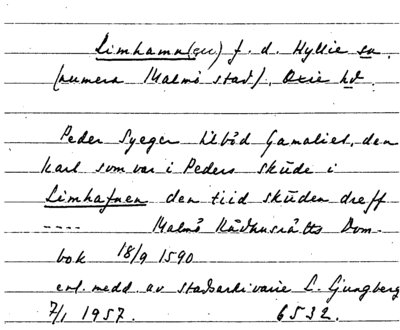 Limhamn (gu) f. d. Hyllie sn.
(numera Malmö stad). Oxie hd.
Peder Syeger tilbød Gamaliel, den
karl som var i Peders skūde i
Limhafnen den tiid skūden dreff
---- Malmö Rådhusrätts Dom-
bok 18/9 1590
enl. medd. av stadsarkivarie L. Ljungberg
7/1 1957. 6532.